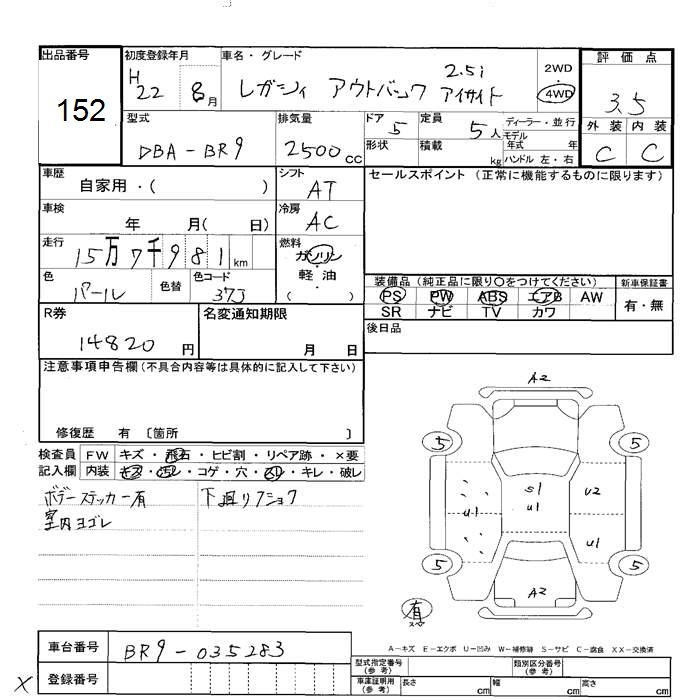 出品番号
152
初度登録年月
H 22 8月
車名・グレード
レガシィ アウトバック 2.5i アイサイト
2WD
4WD
評価点
3.5
外装 内装
C C
型式
DBA-BR9
排気量
2500 cc
ドア 5
定員 5人
ディーラー・並行
モデル
年式 年
形状
積載 kg
ハンドル 左・右
車歴
自家用・( )
シフト
AT
セールスポイント (正常に機能するものに限ります)
車検
年 月( 日)
冷房
AC
走行
15万7千981km
燃料
ガソリン
軽・油
( )
色
パール
色替
色コード
37J
装備品 (純正品に限り○をつけてください)
PS PW ABS エアB AW
SR ナビ TV カワ
新車保証書
有・無
R券
14820円
名変通知期限
月 日
後日品
注意事項申告欄(不具合内容等は具体的に記入して下さい)
修復歴 有 〔箇所 〕
検査員
記入欄
FW キズ・飛石・ヒビ割・リペア跡・×要
内装 キズ・汚レ・コゲ・穴・スレ・キレ・破レ
ボデーステッカー有
室内ヨゴレ
下廻リ
A2
5 5
S1
U1
U1
U2
U1
5 5
A2
有
A-キズ E-エクボ U-凹み W-補修跡 S-サビ C-腐食 XX-交換済
車台番号
BR9-035283
登録番号
X
型式指定番号
(参考)
類別区分番号
(参考)
車庫証明用
(参考)
長さ cm
幅 cm
高さ cm